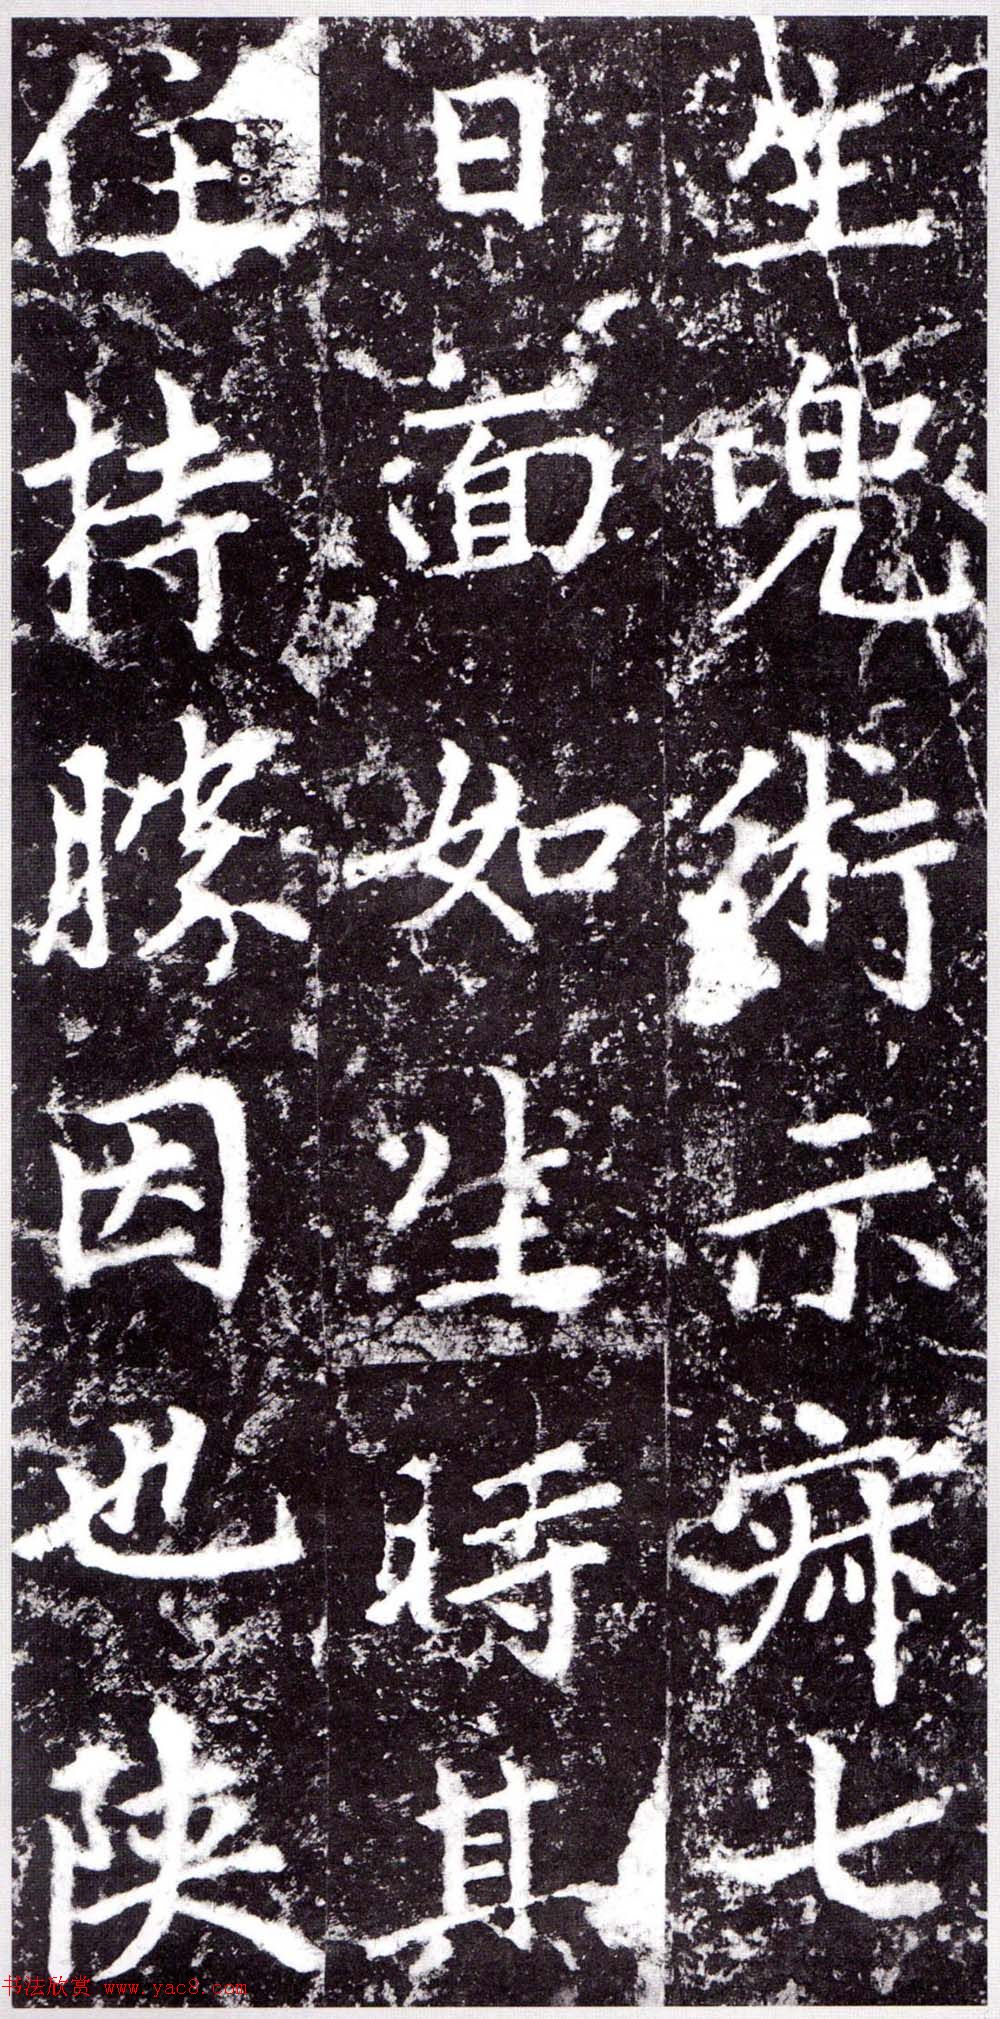 生兜術示寂七
日面如生時其
住持勝因也陝
书法欣赏 www.yac8.com